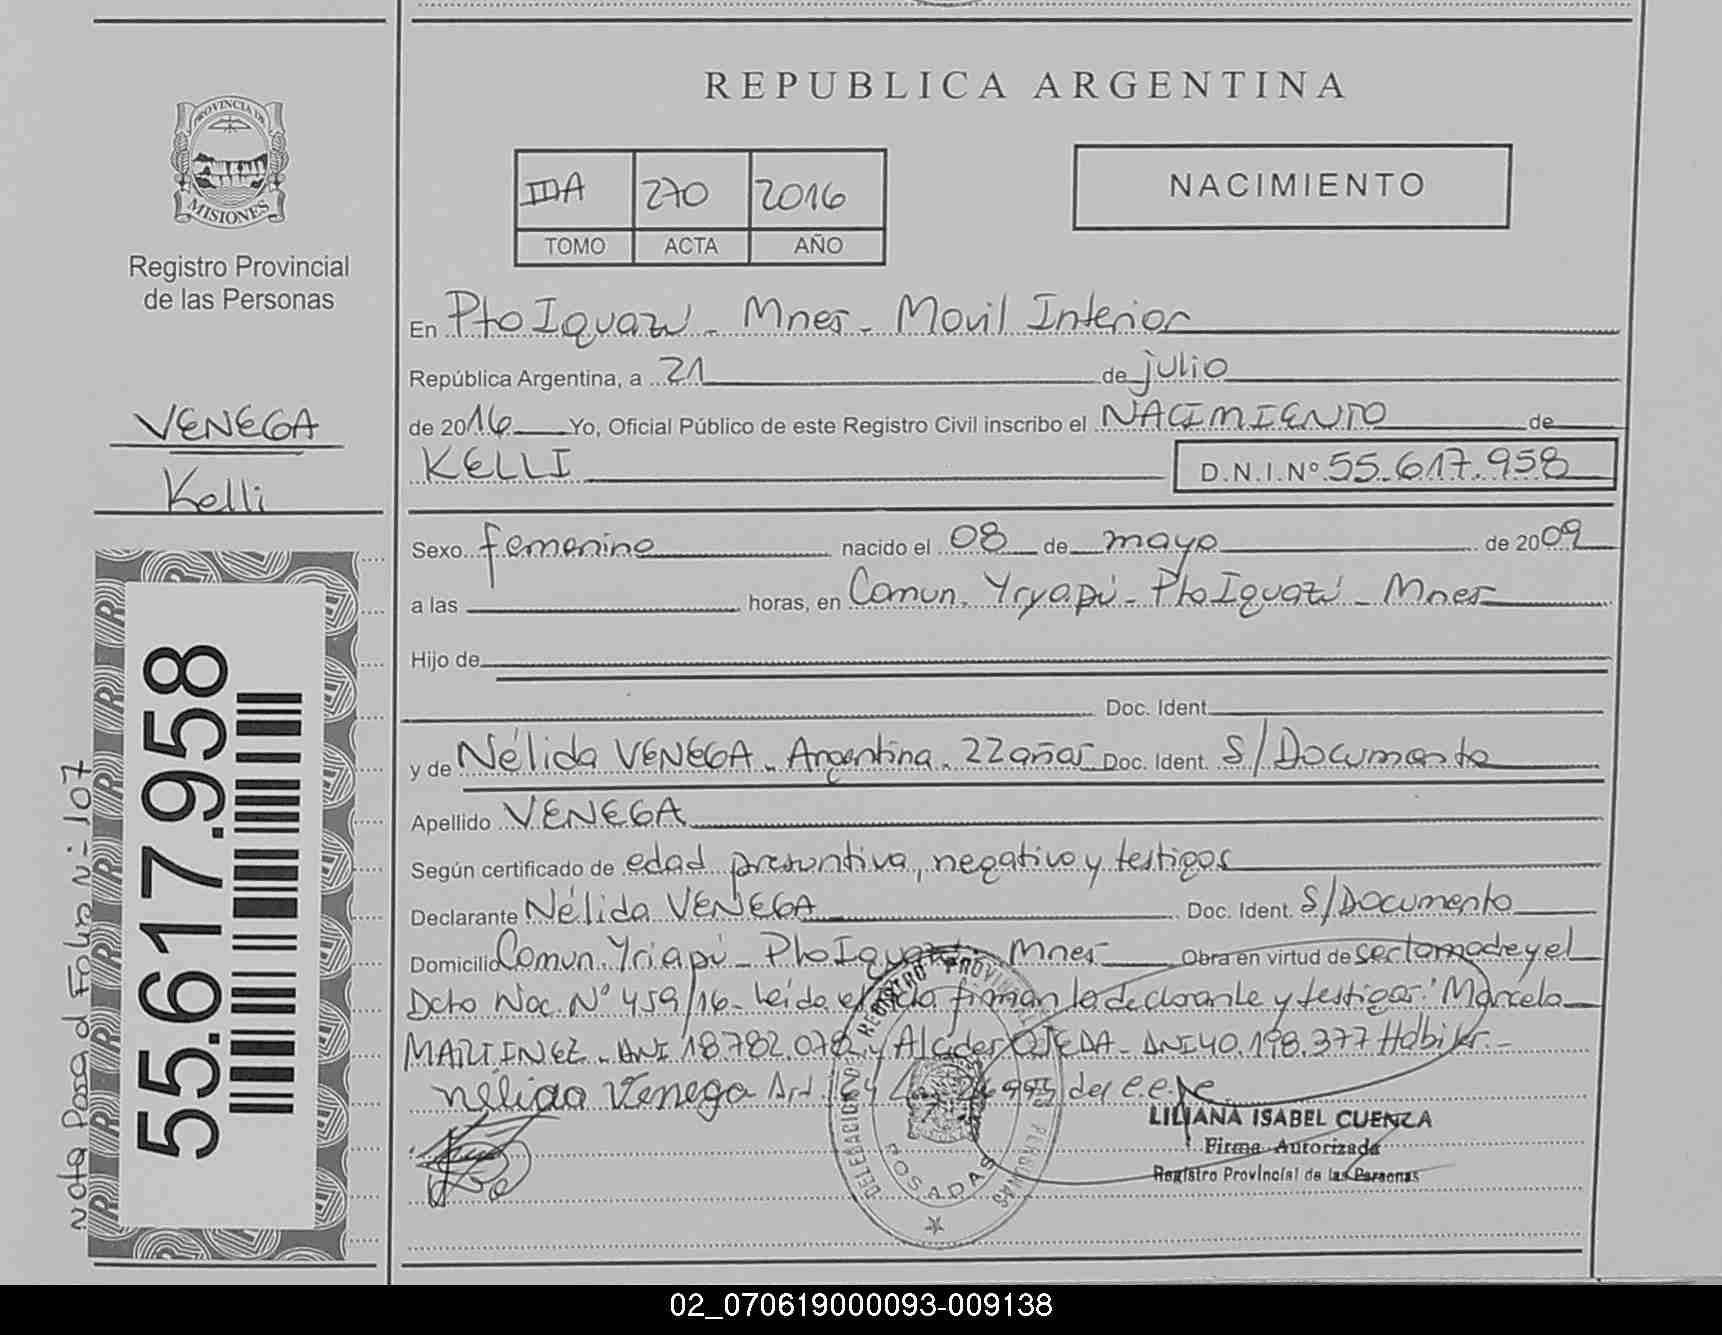 REPUBLICA ARGENTINA
PROVINCIA DE
MISIONES
Registro Provincial
de las Personas
IIDA 270 2016
TOMO ACTA AÑO
NACIMIENTO
VENEGA
Kelli
En Pto Iguazú - Mnes - Movil Interior
República Argentina, a 21 de julio
de 2016 Yo, Oficial Público de este Registro Civil inscribo el NACIMIENTO de
KELLI D.N.I.Nº 55.617.958
Sexo femenino nacido el 08 de mayo de 2009
a las horas, en Comun. Yryapú - Pto Iguazú - Mnes
Hijo de
Doc. Ident.
y de Nélida VENEGA - Argentina - 22 años Doc. Ident. S/Documento
Apellido VENEGA
Según certificado de edad presuntiva, negativo y testigos
Declarante Nélida VENEGA Doc. Ident. S/Documento
Domicilio Comun. Yriapú - Pto Iguazú - Mnes Obra en virtud de ser la madre y el
Dcto Nac. Nº 459/16 - Leída el acta firman la declarante y testigos: Marcela
MARTINEZ - DNI 18.782.078 y Alcides OJEDA - DNI 40.198.377 Habilit.-
nélida Venega Art. Ley del
LILIANA ISABEL CUENCA
Firma Autorizada
Registro Provincial de las Personas
REGISTRO PROVINCIAL
PERSONAS
DELEGACION
POSADAS
55.617.958
Nota Pasa al Folio Nº 107
02_070619000093-009138